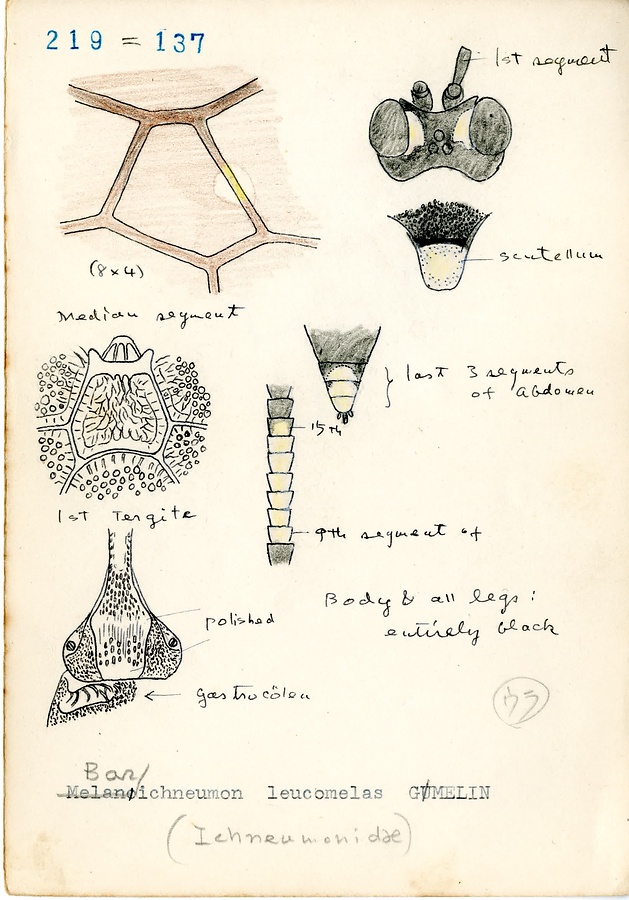 219 = 137
1st segment
(8×4)
scutellum
Median segment
last 3 segments
of Abdomen
15th
1st Tergite
9th segment of
Body & all legs:
entirely black
polished
gastrocölen
ウラ
Bar/
Melanoichneumon leucomelas GUMELIN
(Ichneumonidae)